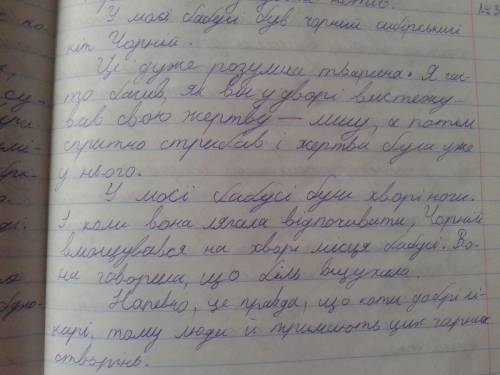 У моєї бабусі був чорний сибірський
кіт Чорний.
Це дуже розумна тварина. Я час-
то бачив, як він у дворі вистежу-
вав свою жертву — мишу, а потім
спритно стрибав і жертва була уже
у нього.
У моєї бабусі були хворі ноги.
І коли вона лягала відпочивати, Чорний
вмощувався на хворі місця бабусі. Во-
на говорила, що біль вщухала.
Напевно, це правда, що коти добрі лі-
карі, тому люди й тримають цих гарних
створінь.